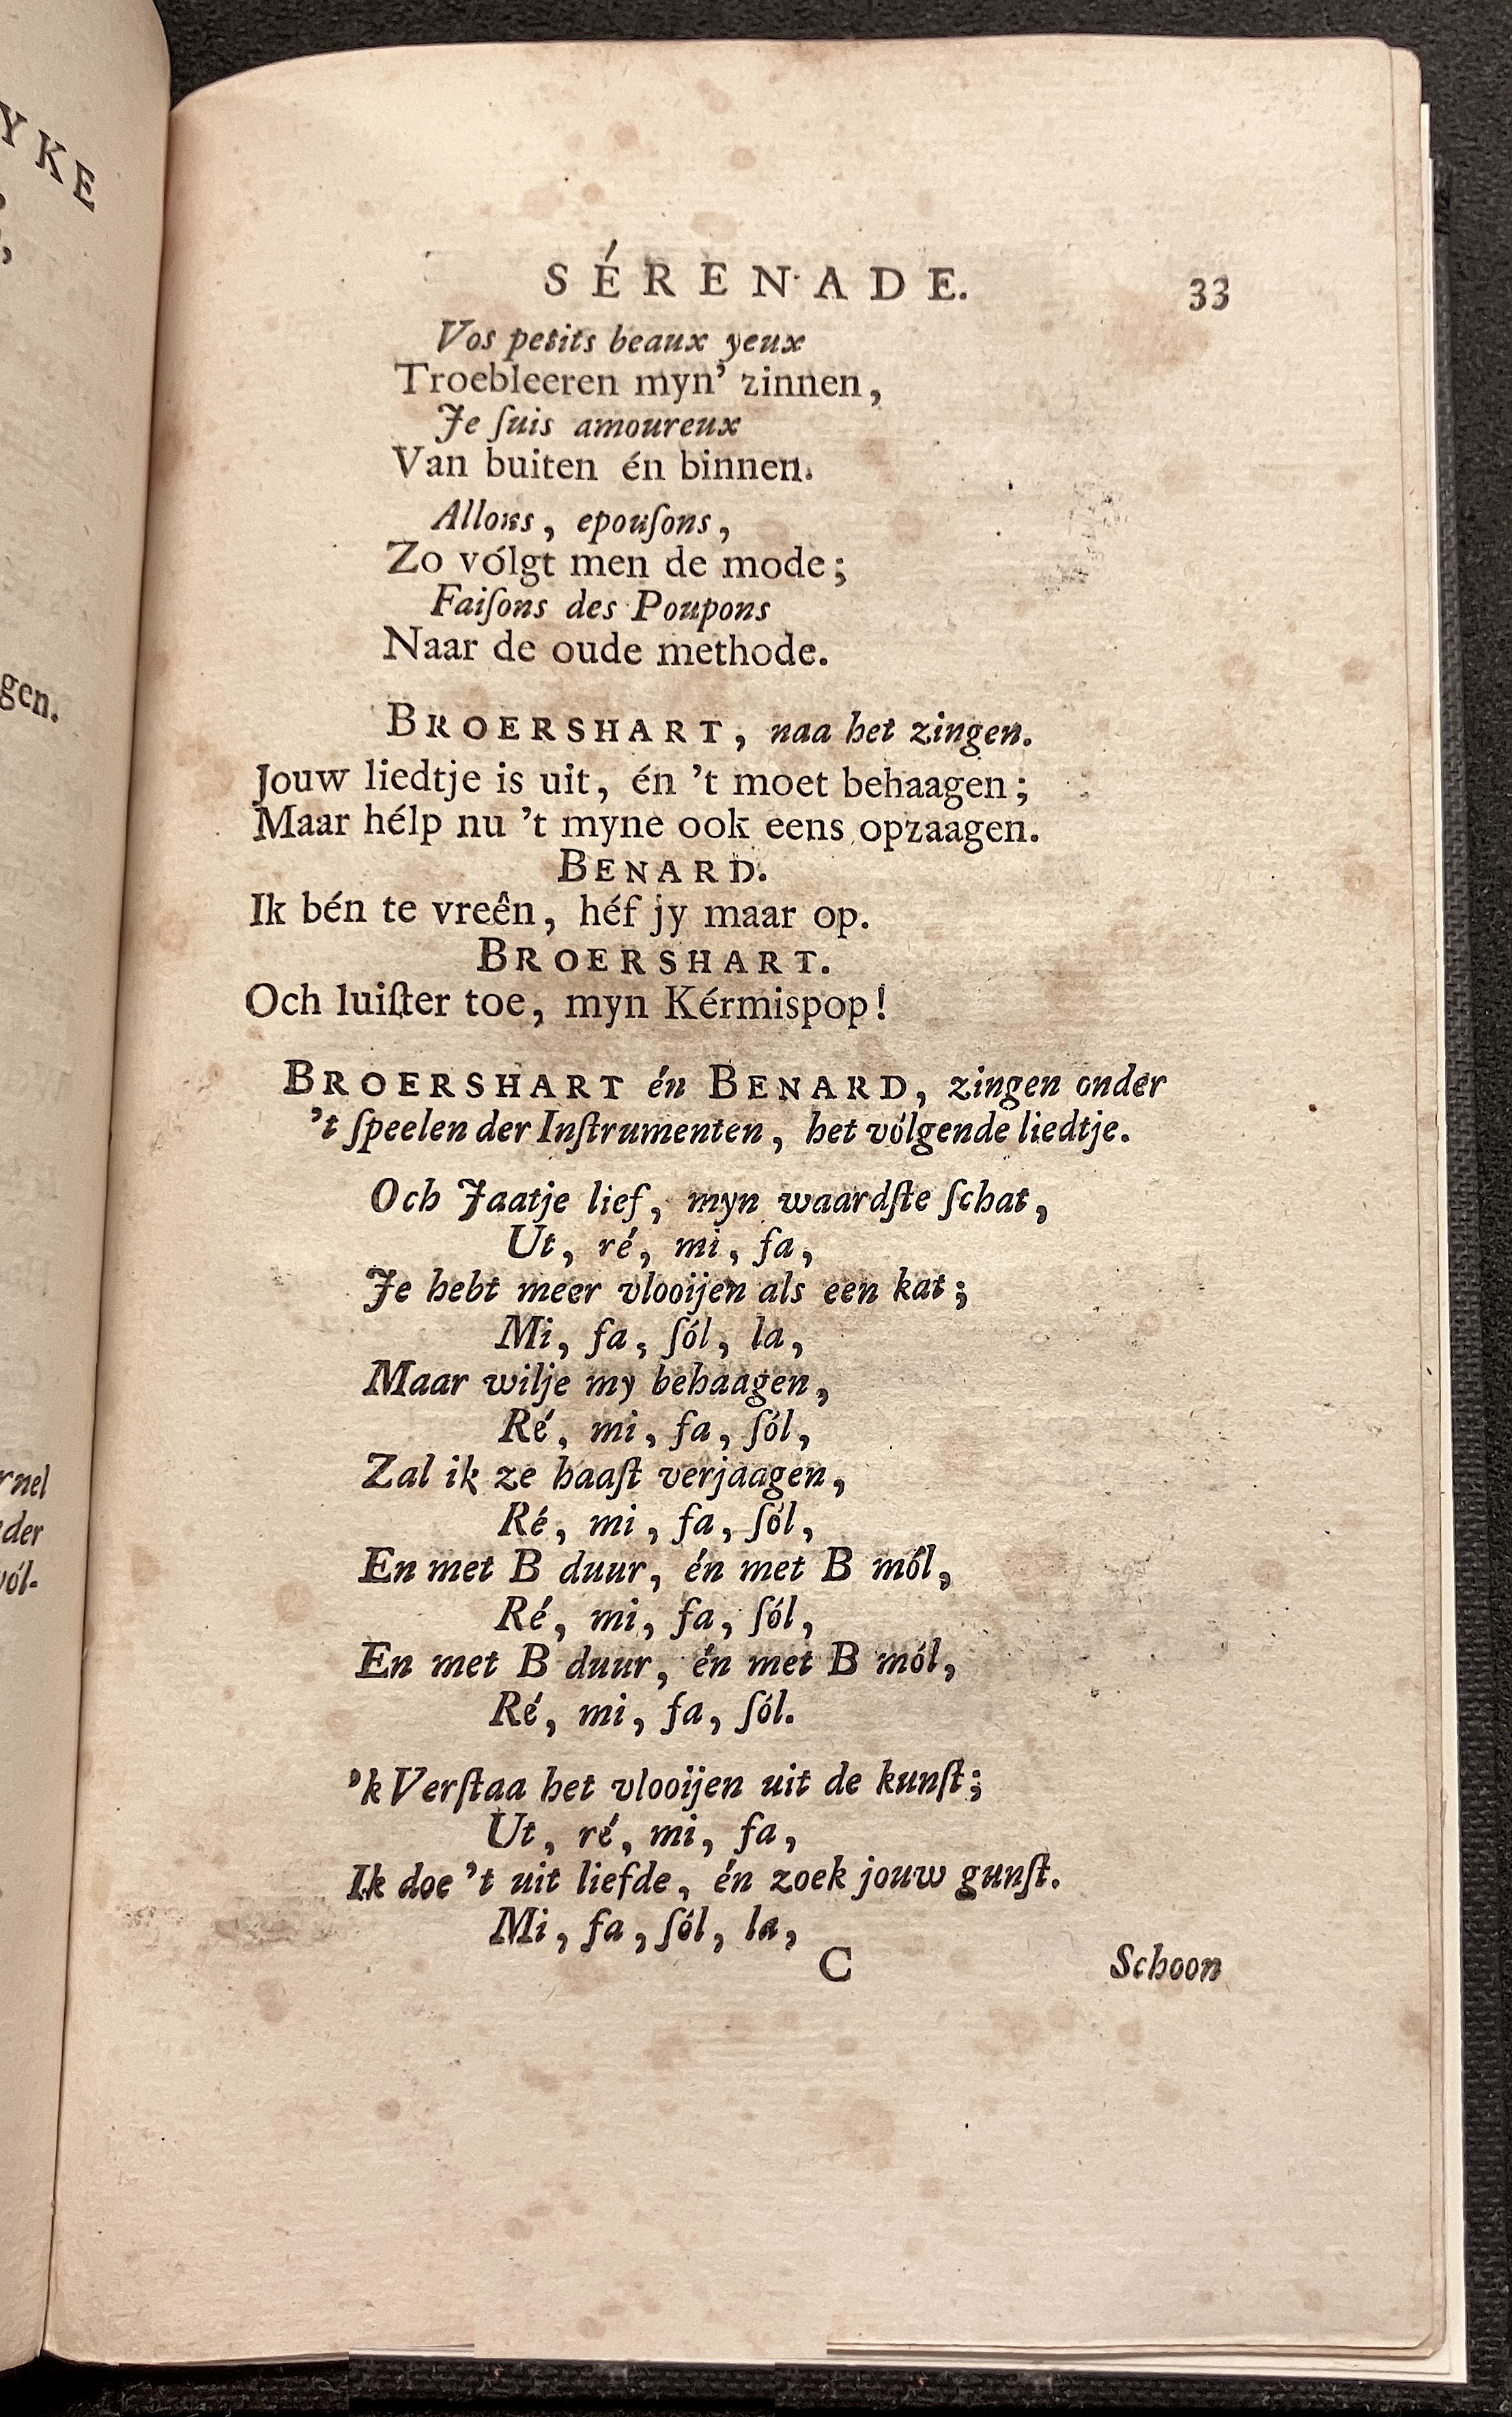 YKE
gen.
rnel
der
vól-
SÉRENADE. 33
Vos petits beaux yeux
Troebleeren myn' zinnen,
Je ſuis amoureux
Van buiten én binnen.
Allons, epouſons,
Zo vólgt men de mode;
Faiſons des Poupons
Naar de oude methode.
BROERSHART, naa het zingen.
Jouw liedtje is uit, én 't moet behaagen;
Maar hélp nu 't myne ook eens opzaagen.
BENARD.
Ik bén te vreên, héf jy maar op.
BROERSHART.
Och luiſter toe, myn Kérmispop!
BROERSHART én BENARD, zingen onder
't ſpeelen der Inſtrumenten, het vólgende liedtje.
Och Jaatje lief, myn waardſte ſchat,
Ut, ré, mi, fa,
Je hebt meer vlooijen als een kat;
Mi, fa, ſól, la,
Maar wilje my behaagen,
Ré, mi, fa, ſól,
Zal ik ze haaſt verjaagen,
Ré, mi, fa, ſól,
En met B duur, én met B mól,
Ré, mi, fa, ſól,
En met B duur, én met B mól,
Ré, mi, fa, ſól.
'k Verſtaa het vlooijen uit de kunſt;
Ut, ré, mi, fa,
Ik doe 't uit liefde, én zoek jouw gunſt.
Mi, fa, ſól, la,
C Schoon